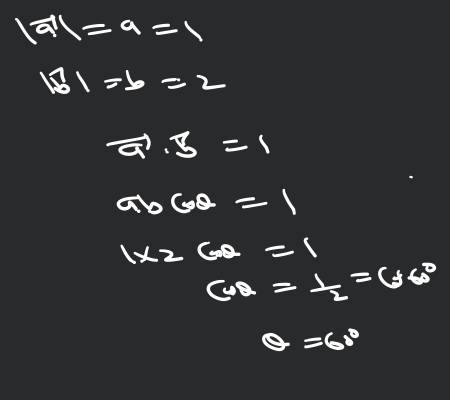 |a⃗| = a = 1
|b⃗| = b = 2
a⃗ . b⃗ = 1
ab Cosθ = 1
1×2 Cosθ = 1
Cosθ = 1/2 = Cos60°
θ = 60°